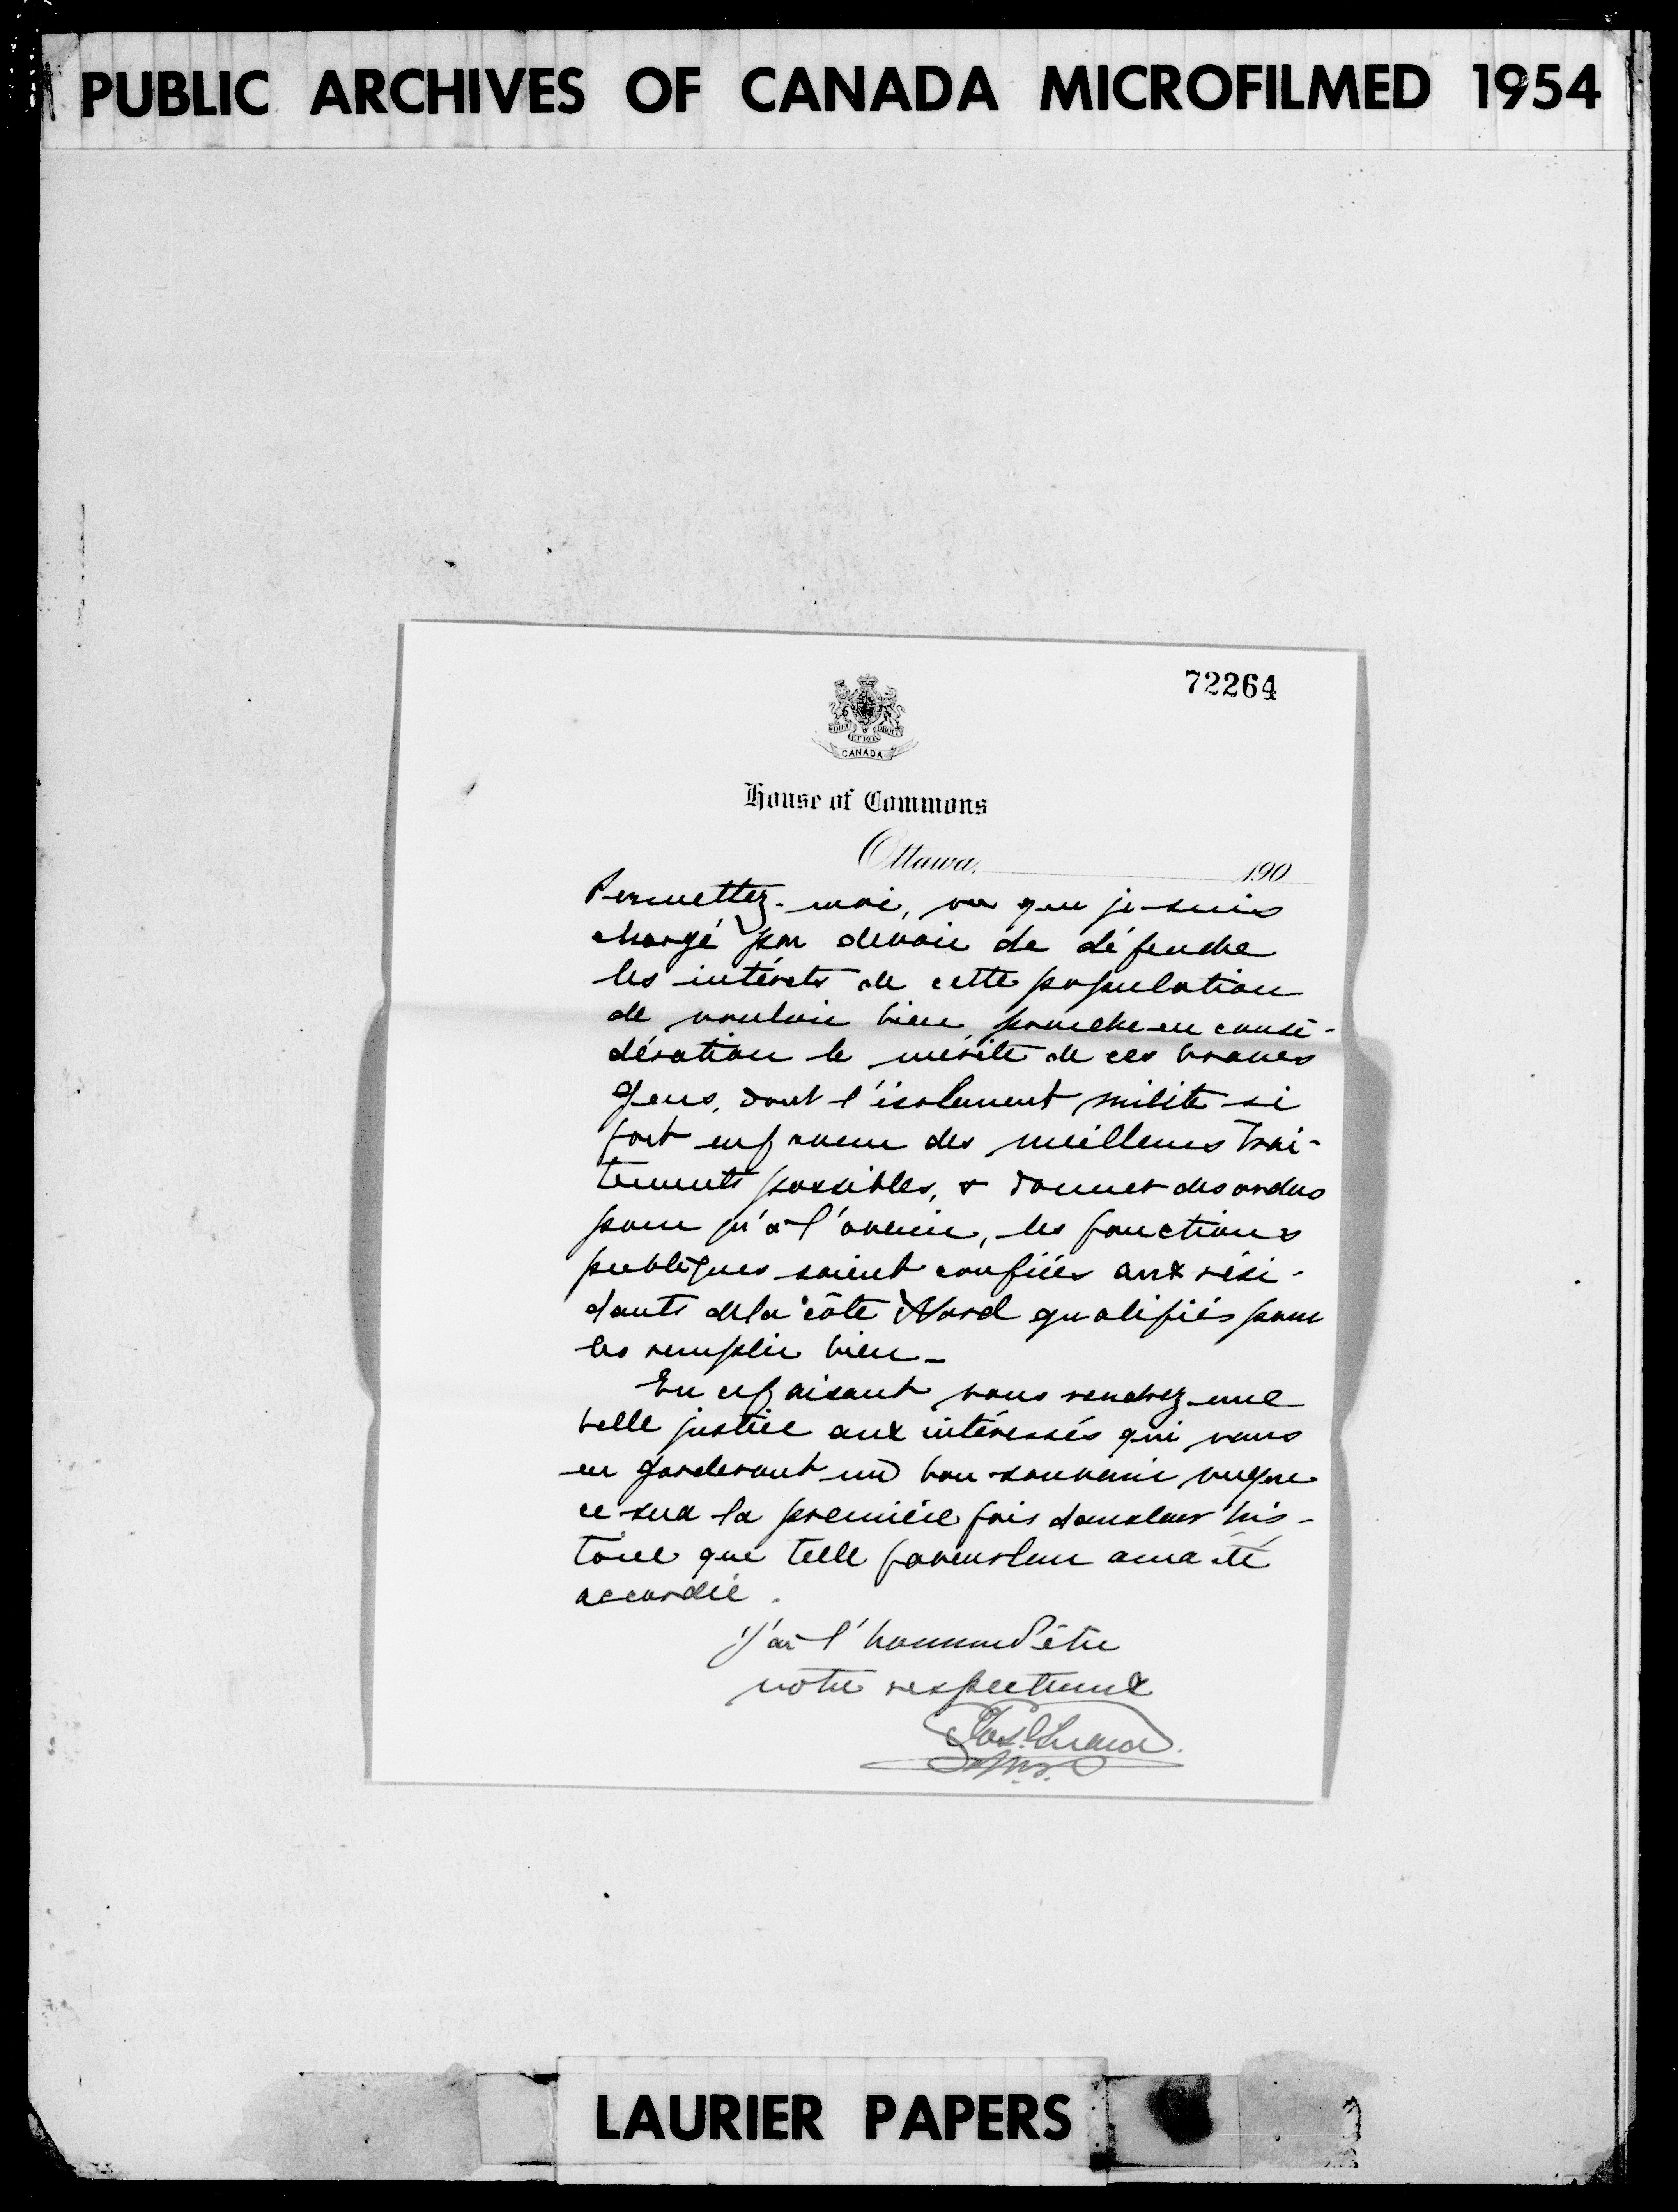 PUBLIC ARCHIVES OF CANADA MICROFILMED 1954
72264
CANADA
House of Commons
Ottawa, 190
Permettez-moi, vu que je suis
chargé par devoir de défendre
les intérets de cette population
de vouloir bien prendre en consi-
dération le mérite de ces braves
gens, dont l'isolement milite si
fort en faveur des meilleurs trai-
tements possibles, & donner des ordres
pour qu'à l'avenir, les fonctions
publiques soient confiées aux rési-
dants de la côte Nord qualifiés pour
les remplir bien_
En ce faisant vous rendrez une
belle justice aux intéressés qui vous
en garderont un bon souvenir vu que
ce sera la première fois dans leur his-
toire que telle faveur leur aura été
accordée.
J'ai l'honneur d'être
votre respectueux
Jos.
M.P.
LAURIER PAPERS